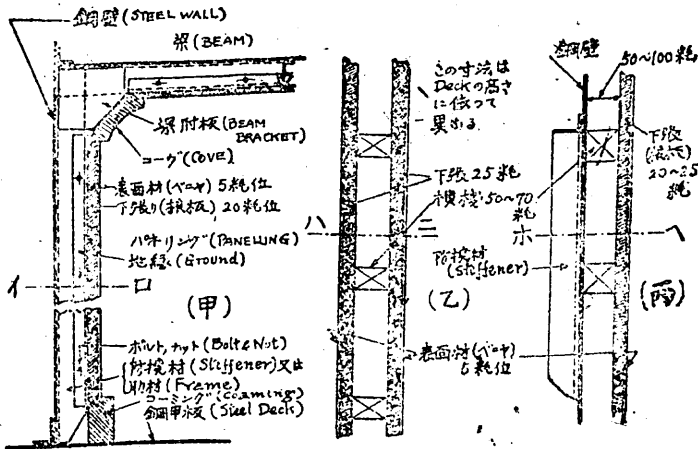 鋼壁 (STEEL WALL)
梁 (BEAM)
梁肘板 (BEAM
BRACKET)
コーヴ (COVE)
表面材 (ベニヤ) 5粍位
下張り (根板) 20粍位
パネリング (PANELLING)
地 (Ground)
イ
ロ
(甲)
ボルト,ナット (Bolt & Nut)
防撓材 (Stiffener) 又は
肋材 (Frame)
コーミング (Coaming)
鋼甲板 (Steel Deck)
この寸法は
Deckの高さ
に依って
異なる
下張 25粍
横桟 50~70
粍
ハ
ニ
(乙)
表面材 (ベニヤ)
5粍位
鋼壁
50~100粍
下張
20~25
粍
ホ
ヘ
防撓材
(Stiffener)
(丙)